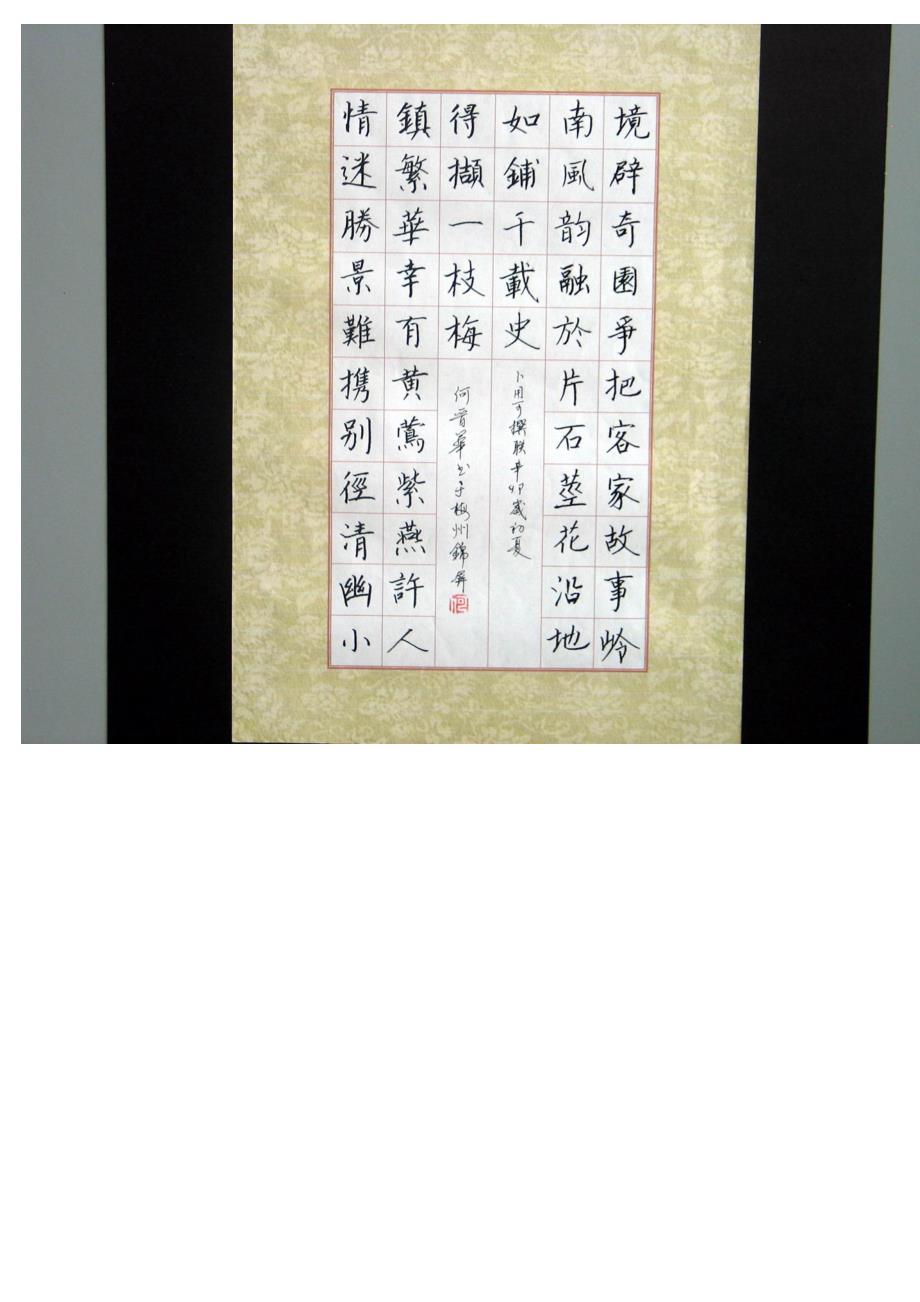 境辟奇園爭把客家故事岭
南風韵融於片石莖花沿地
如鋪千載史
卜用可撰联辛卯歲初夏
情迷勝景難携别徑清幽小
鎮繁華幸有黄鶯紫燕許人
得擷一枝梅
何晋華书于梅州錦屏
何